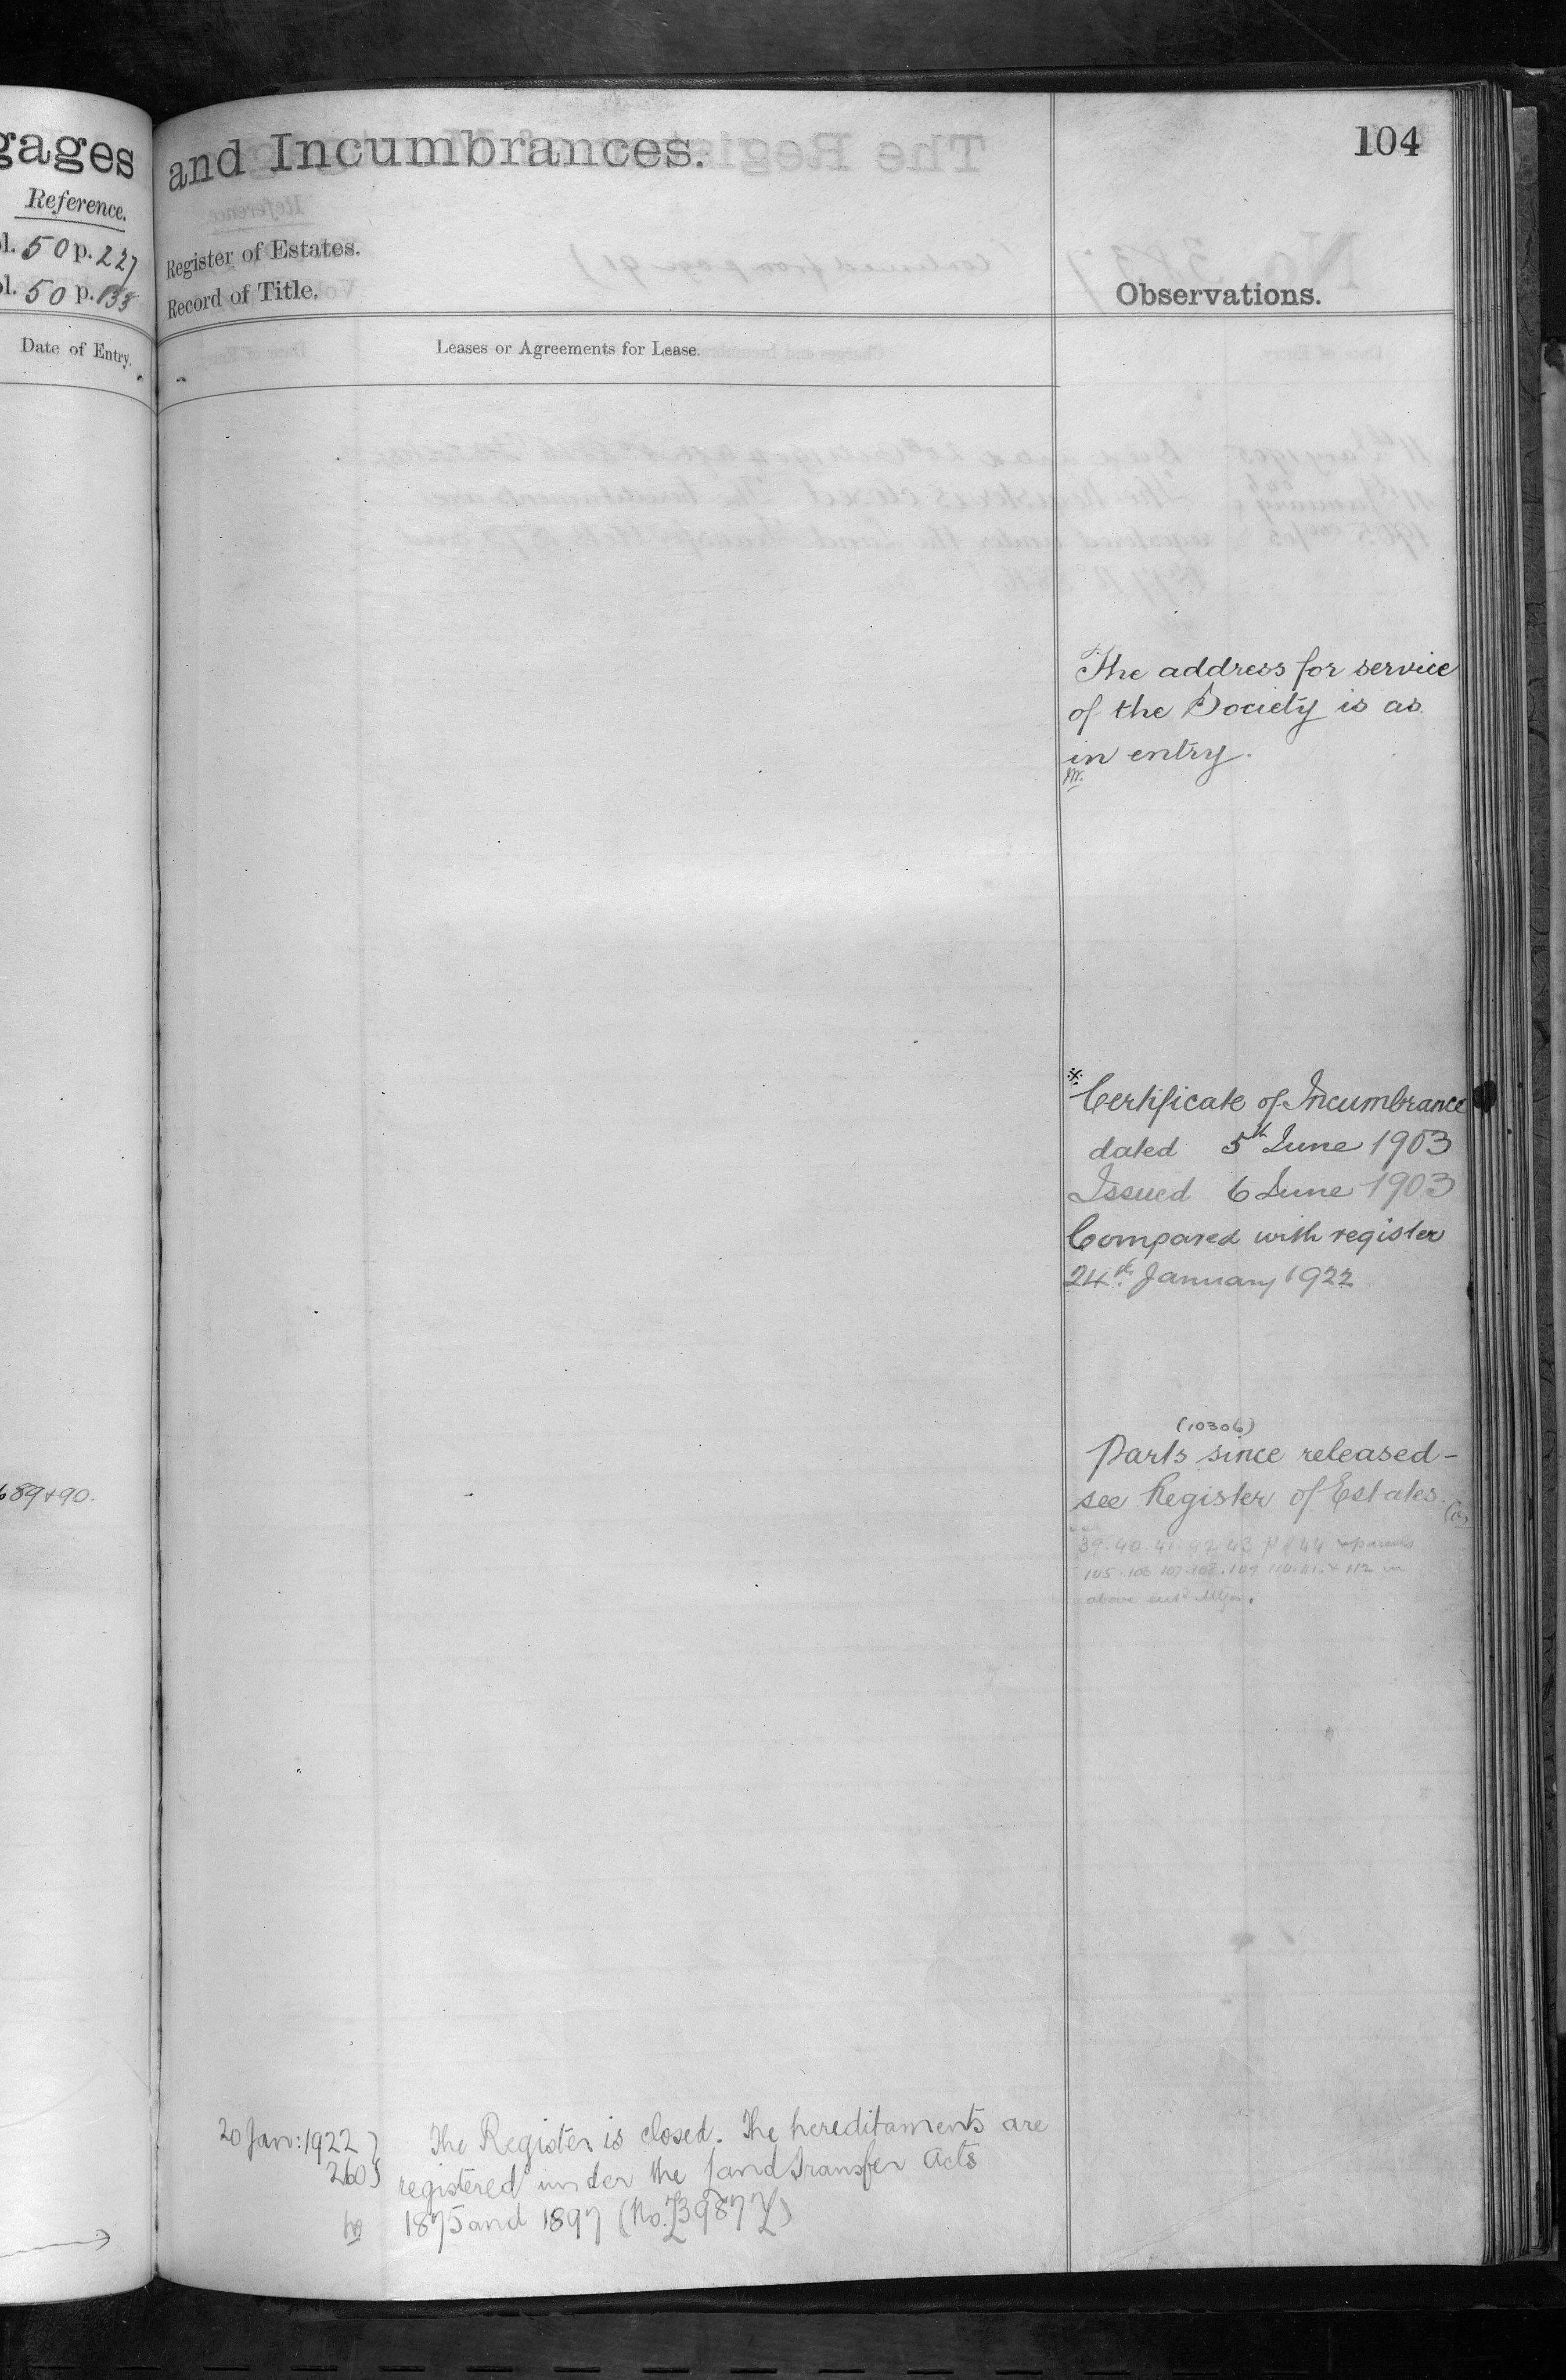 gages
Reference.
l. 50 p. 227
l. 50 p. 133
Date of Entry.
689 + 90.
and Incumbrances.
104
Register of Estates.
Record of Title.
Observations.
Leases or Agreements for Lease.
The address for service
of the Society is as
in entry.
Certificate of Incumbrance
dated 5th June 1903
Issued 6 June 1903
Compared with register
24th January 1922
(10306)
Parts since released -
see Register of Estates.
39. 40. 41. 42. 43 44 + parcels
105. 106 107. 108. 109 110. 111. + 112 in
above
20 Jan: 1922 The Register is closed. The hereditaments are
260 registered under the Land Transfer Acts
1875 and 1897 (No.